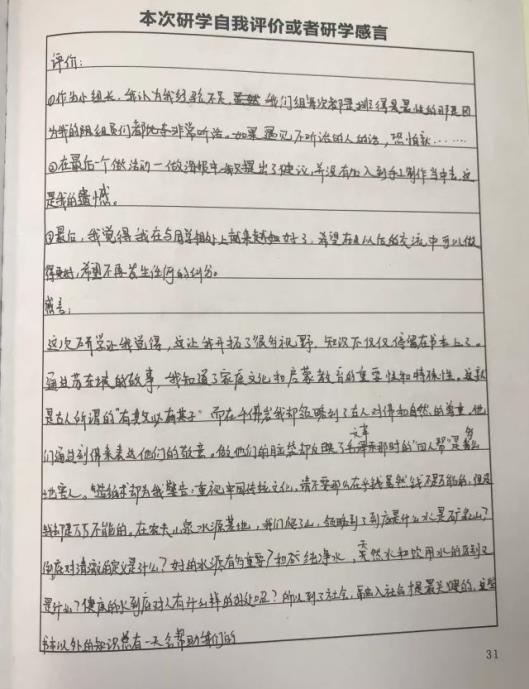 本次研学自我评价或者研学感言
评价:
①作为小组长,我认为我经验不足,我们组每次都是排得最快的那是因
为我的组员们都非常听话。如果遇见不听话的人的话,恐怕就……
②在最后一个做活动一做海报中我只提出了建议,并没有加入到手工制作当中去,这
是我的遗憾。
③最后,我觉得我在与同学相处上越来越好了,希望在以后的交流中可以做
得更好,希望不再发生任何的纠纷。
感言:
这次研学让我觉得,这让我开拓了很多视野,知识不仅仅停留在书本上了。
通过苏东坡的故事,我知道了家庭文化和启蒙教育的重要性和特殊性。这就
是古人所谓的"有其父必有其子"而在千佛岩我却领略到了古人对佛和自然的尊重,他
们通过刻佛来表达他们的敬意。做他们的脑袋却反映了文革那时的"四人帮"是多么
地害人。却为我警告:重视中国传统文化,请不要那么在乎钱虽然钱不是万能的,但没
钱却是万万不能的,在农夫山泉水源基地,我们爬了山,领略到了到底是什么水是矿泉水?
应对清澈的定义是什么?好的水源有多重要?和纯净水,天然水和饮用水的区别又
是什么?健康的水到底对人有什么样的好处呢?所以到了社会,融入社会才是最关键的,这些
书本以外的知识总有一天会帮助我们的
31